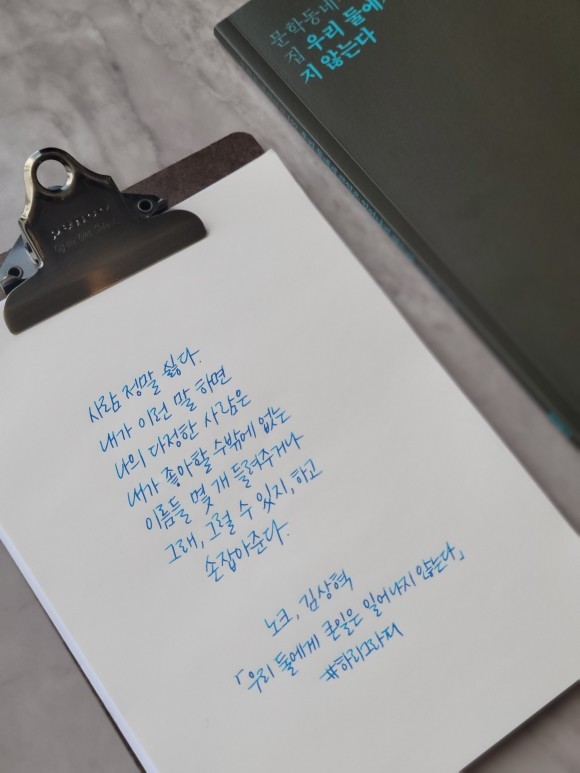 문학동네
집 우리 둘에
지 않는다
PENCO
사람 정말 싫다.
내가 이런 말 하면
나의 다정한 사람은
내가 좋아할 수밖에 없는
이름들 몇 개 들려주거나
그래, 그럴 수 있지, 하고
손잡아준다.
노크, 김상혁
「우리 둘에게 큰일은 일어나지 않는다」
#하리그라피